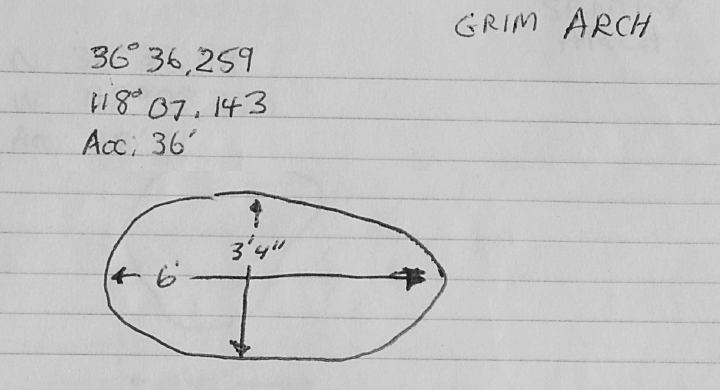 GRIM ARCH
36° 36.259
118° 07.143
Acc: 36'
3'4"
6'